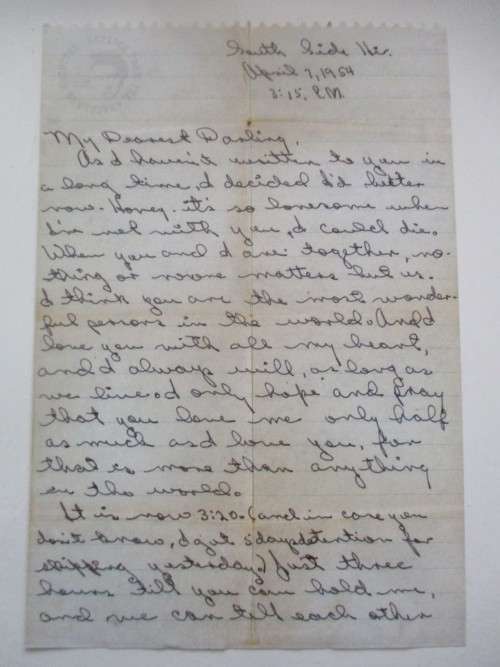 South Side Hi.
April 7, 1954
3:15, P.M.
My Dearest Darling,
As I haven't written to you in
a long time, I decided I'd better
now. Honey. it's so lonesome when
I'm not with you, I could die.
When you and I are together, no-
thing or noone matters but us.
I think you are the most wonder-
ful person in the world. And I
love you with all my heart,
and I always will, as long as
we live. I only hope and pray
that you love me only half
as much as I love you, for
that is more than anything
in the world.
It is now 3:20. (and in case you
don't know, I got 5 days detention for
skipping yesterday.) Just three
hours till you can hold me,
and we can tell each other